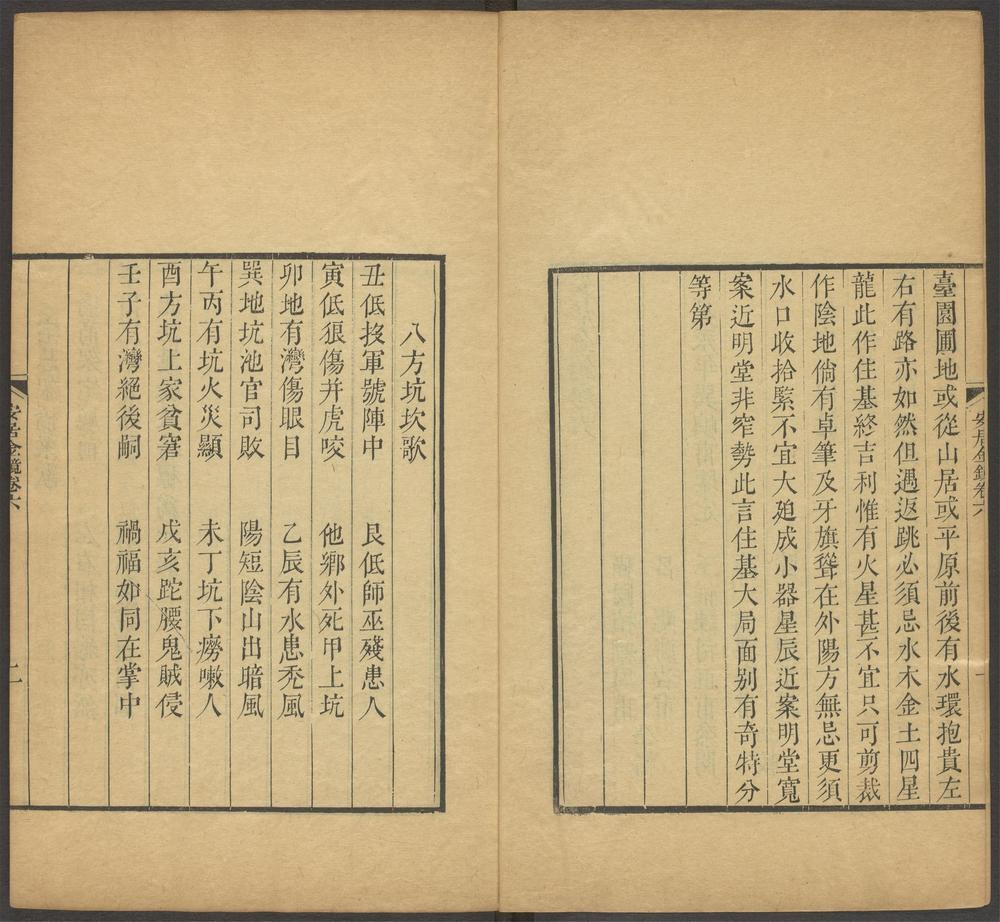 安居金鏡卷六
一
臺園圃地或從山居或平原前後有水環抱貴左
右有路亦如然但遇返跳必須忌水木金土四星
龍此作住基終吉利惟有火星甚不宜只可剪裁
作陰地倘有卓筆及牙旗聳在外陽方無忌更須
水口收拾緊不宜大廹成小器星辰近案明堂寬
案近明堂非窄勢此言住基大局面别有奇特分
等第
八方坑坎歌
丑低投軍號陣中　艮低師巫殘患人
寅低狠傷并虎咬　他鄉外死甲上坑
卯地有灣傷眼目　乙辰有水患禿風
巽地坑池官司敗　陽短陰山出暗風
午丙有坑火災顯　未丁坑下癆嗽人
酉方坑上家貧窘　戌亥跎腰鬼賊侵
壬子有灣絕後嗣　禍福如同在掌中
安居金鏡卷六
二